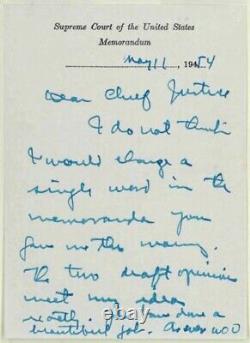 Supreme Court of the United States
Memorandum
May 11, 1954
Dear Chief Justice
I do not think
I would change a
single word in the
memoranda you
gave me this morning.
The two draft opinions
meet my idea
exactly. You have done a
beautiful job. As ever WOD